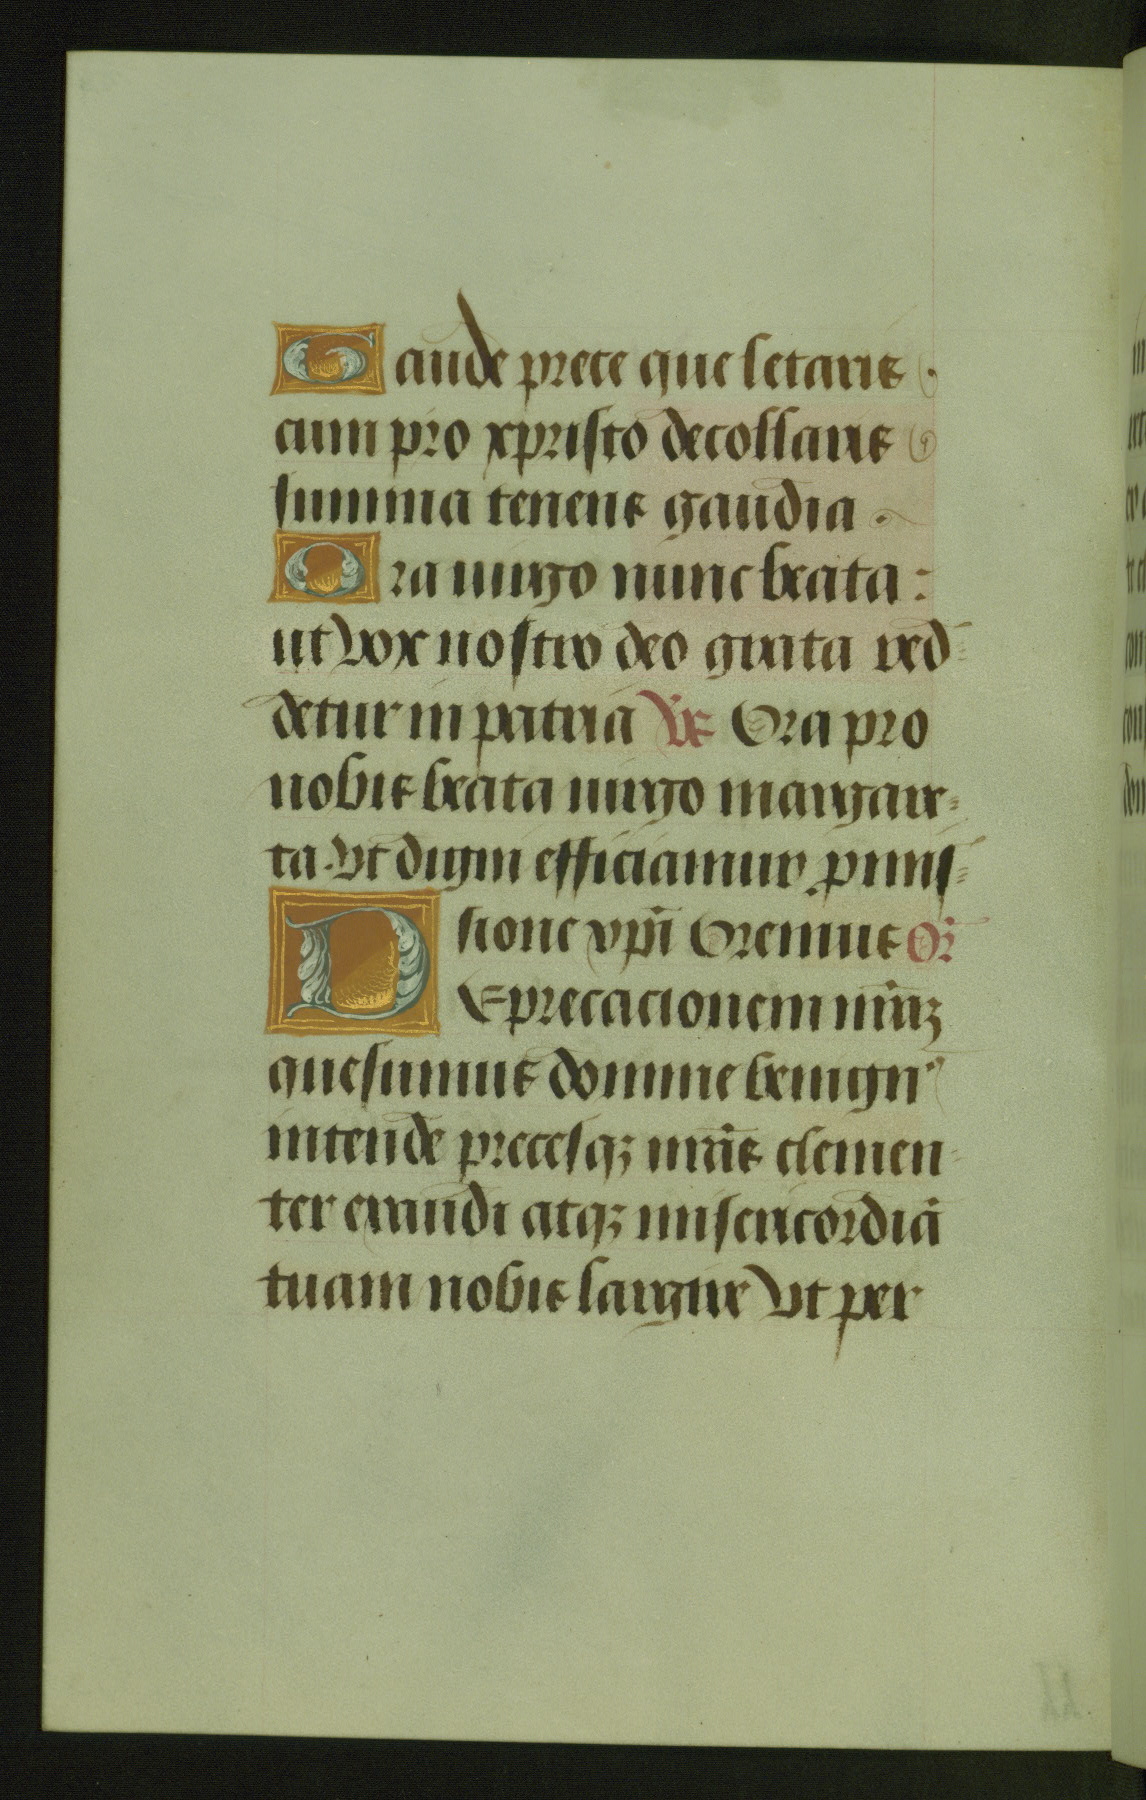 Gaude prece que letaris
cum pro xpristo decollaris
summa tenens gaudia .
Ora uirgo nunc beata :
ut vox nostro deo grata red=
detur in patria Vs Ora pro
nobis beata uirgo margare=
ta . Ut digni efficiamur ꝓmis=
sione xp̄i Oremus Or̄
Deprecacionem nr̄aꝫ
quesumus domine benignꝰ
intende precesqꝫ nr̄as clemen=
ter exaudi atqꝫ misericordiā
tuam nobis largire Ut per